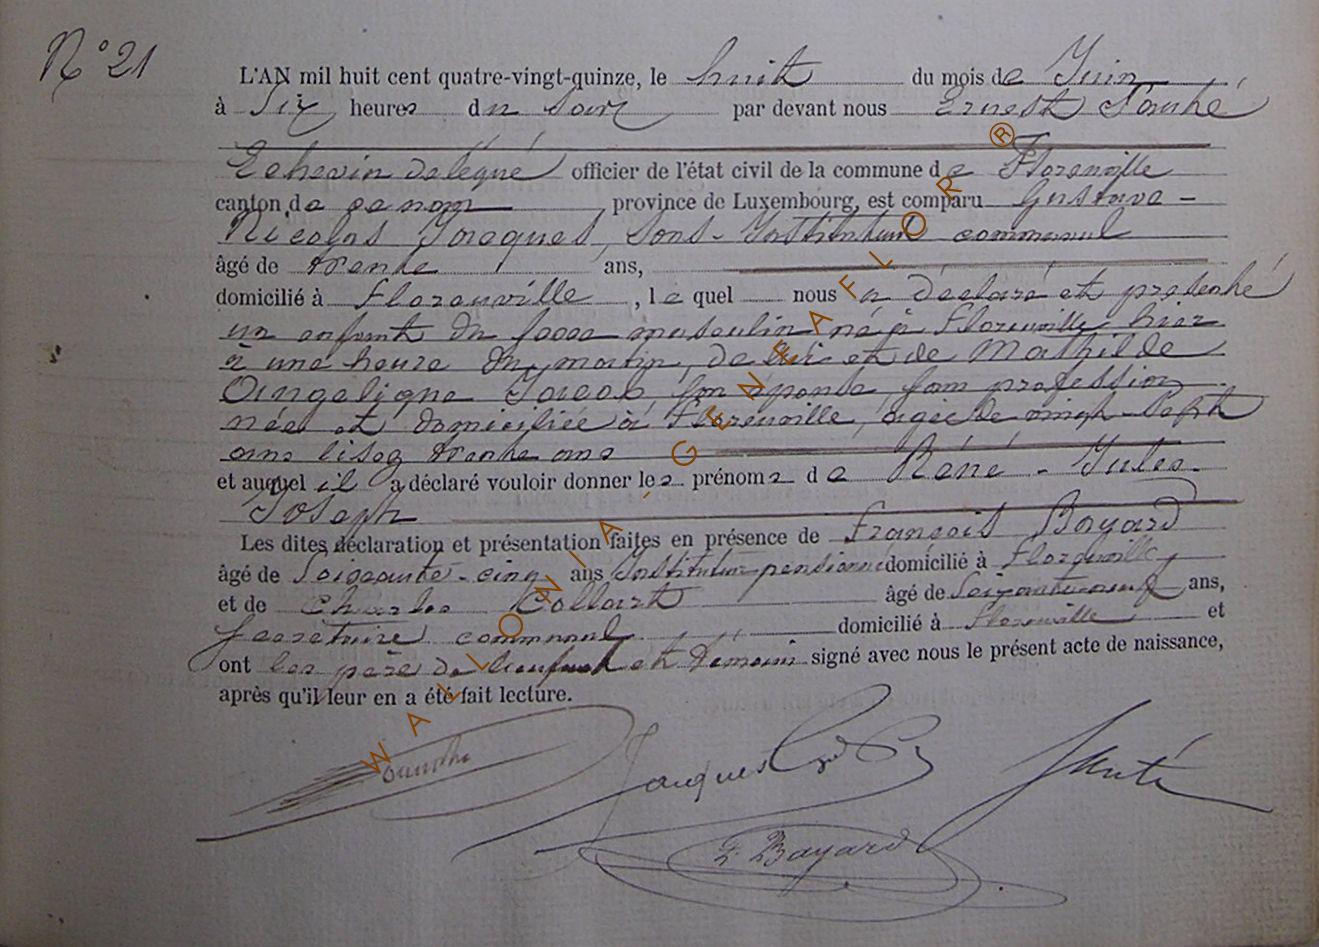 N° 21
L'AN mil huit cent quatre-vingt-quinze, le huit du mois de Juin
à Six heures du Soir par devant nous Ernest
Echevin délégué officier de l'état civil de la commune de Florenville
canton de ce nom, province de Luxembourg, est comparu Gustave -
Nicolas Jacques, Sous-Instituteur communal
âgé de trente ans,
domicilié à Florenville, le quel nous a déclaré et présenté
un enfant du sexe masculin né à Florenville hier
à une heure du matin, de lui et de Mathilde
Angelique Jacob, son épouse, sans profession
née et domiciliée à Florenville, âgée de vingt-Sept
ans trente ans
et auquel il a déclaré vouloir donner les prénoms de Réné - Jules -
Joseph
Les dites déclaration et présentation faites en présence de François Bayard
âgé de Soixante-cinq ans Instituteur pensionné domicilié à Florenville
et de Charles Collart âgé de Soixante neuf ans,
Secrétaire communal domicilié à Florenville et
ont les père de l'enfant et témoins signé avec nous le présent acte de naissance,
après qu'il leur en a été fait lecture.
Jacques
F. Bayard
WALLONIA-GENEAFLOR®